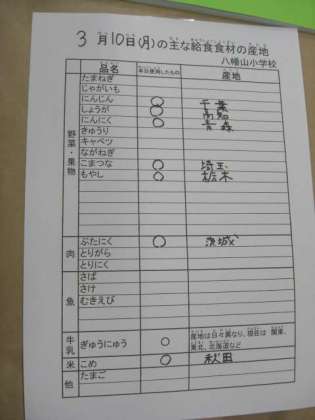 3月10日(月)の主な給食食材の産地
八幡山小学校
品名 本日使用したもの 産地
野菜・果物
たまねぎ
じゃがいも
にんじん ○ 千葉
しょうが ○ 高知
にんにく ○ 青森
きゅうり
キャベツ
ながねぎ
こまつな ○ 埼玉
もやし ○ 栃木
肉
ぶたにく ○ 茨城
とりがら
とりにく
魚
さば
さけ
むきえび
牛乳 ぎゅうにゅう ○ 産地は日々異なり、現在は 関東、
東北、北海道など
米 こめ ○ 秋田
他 たまご